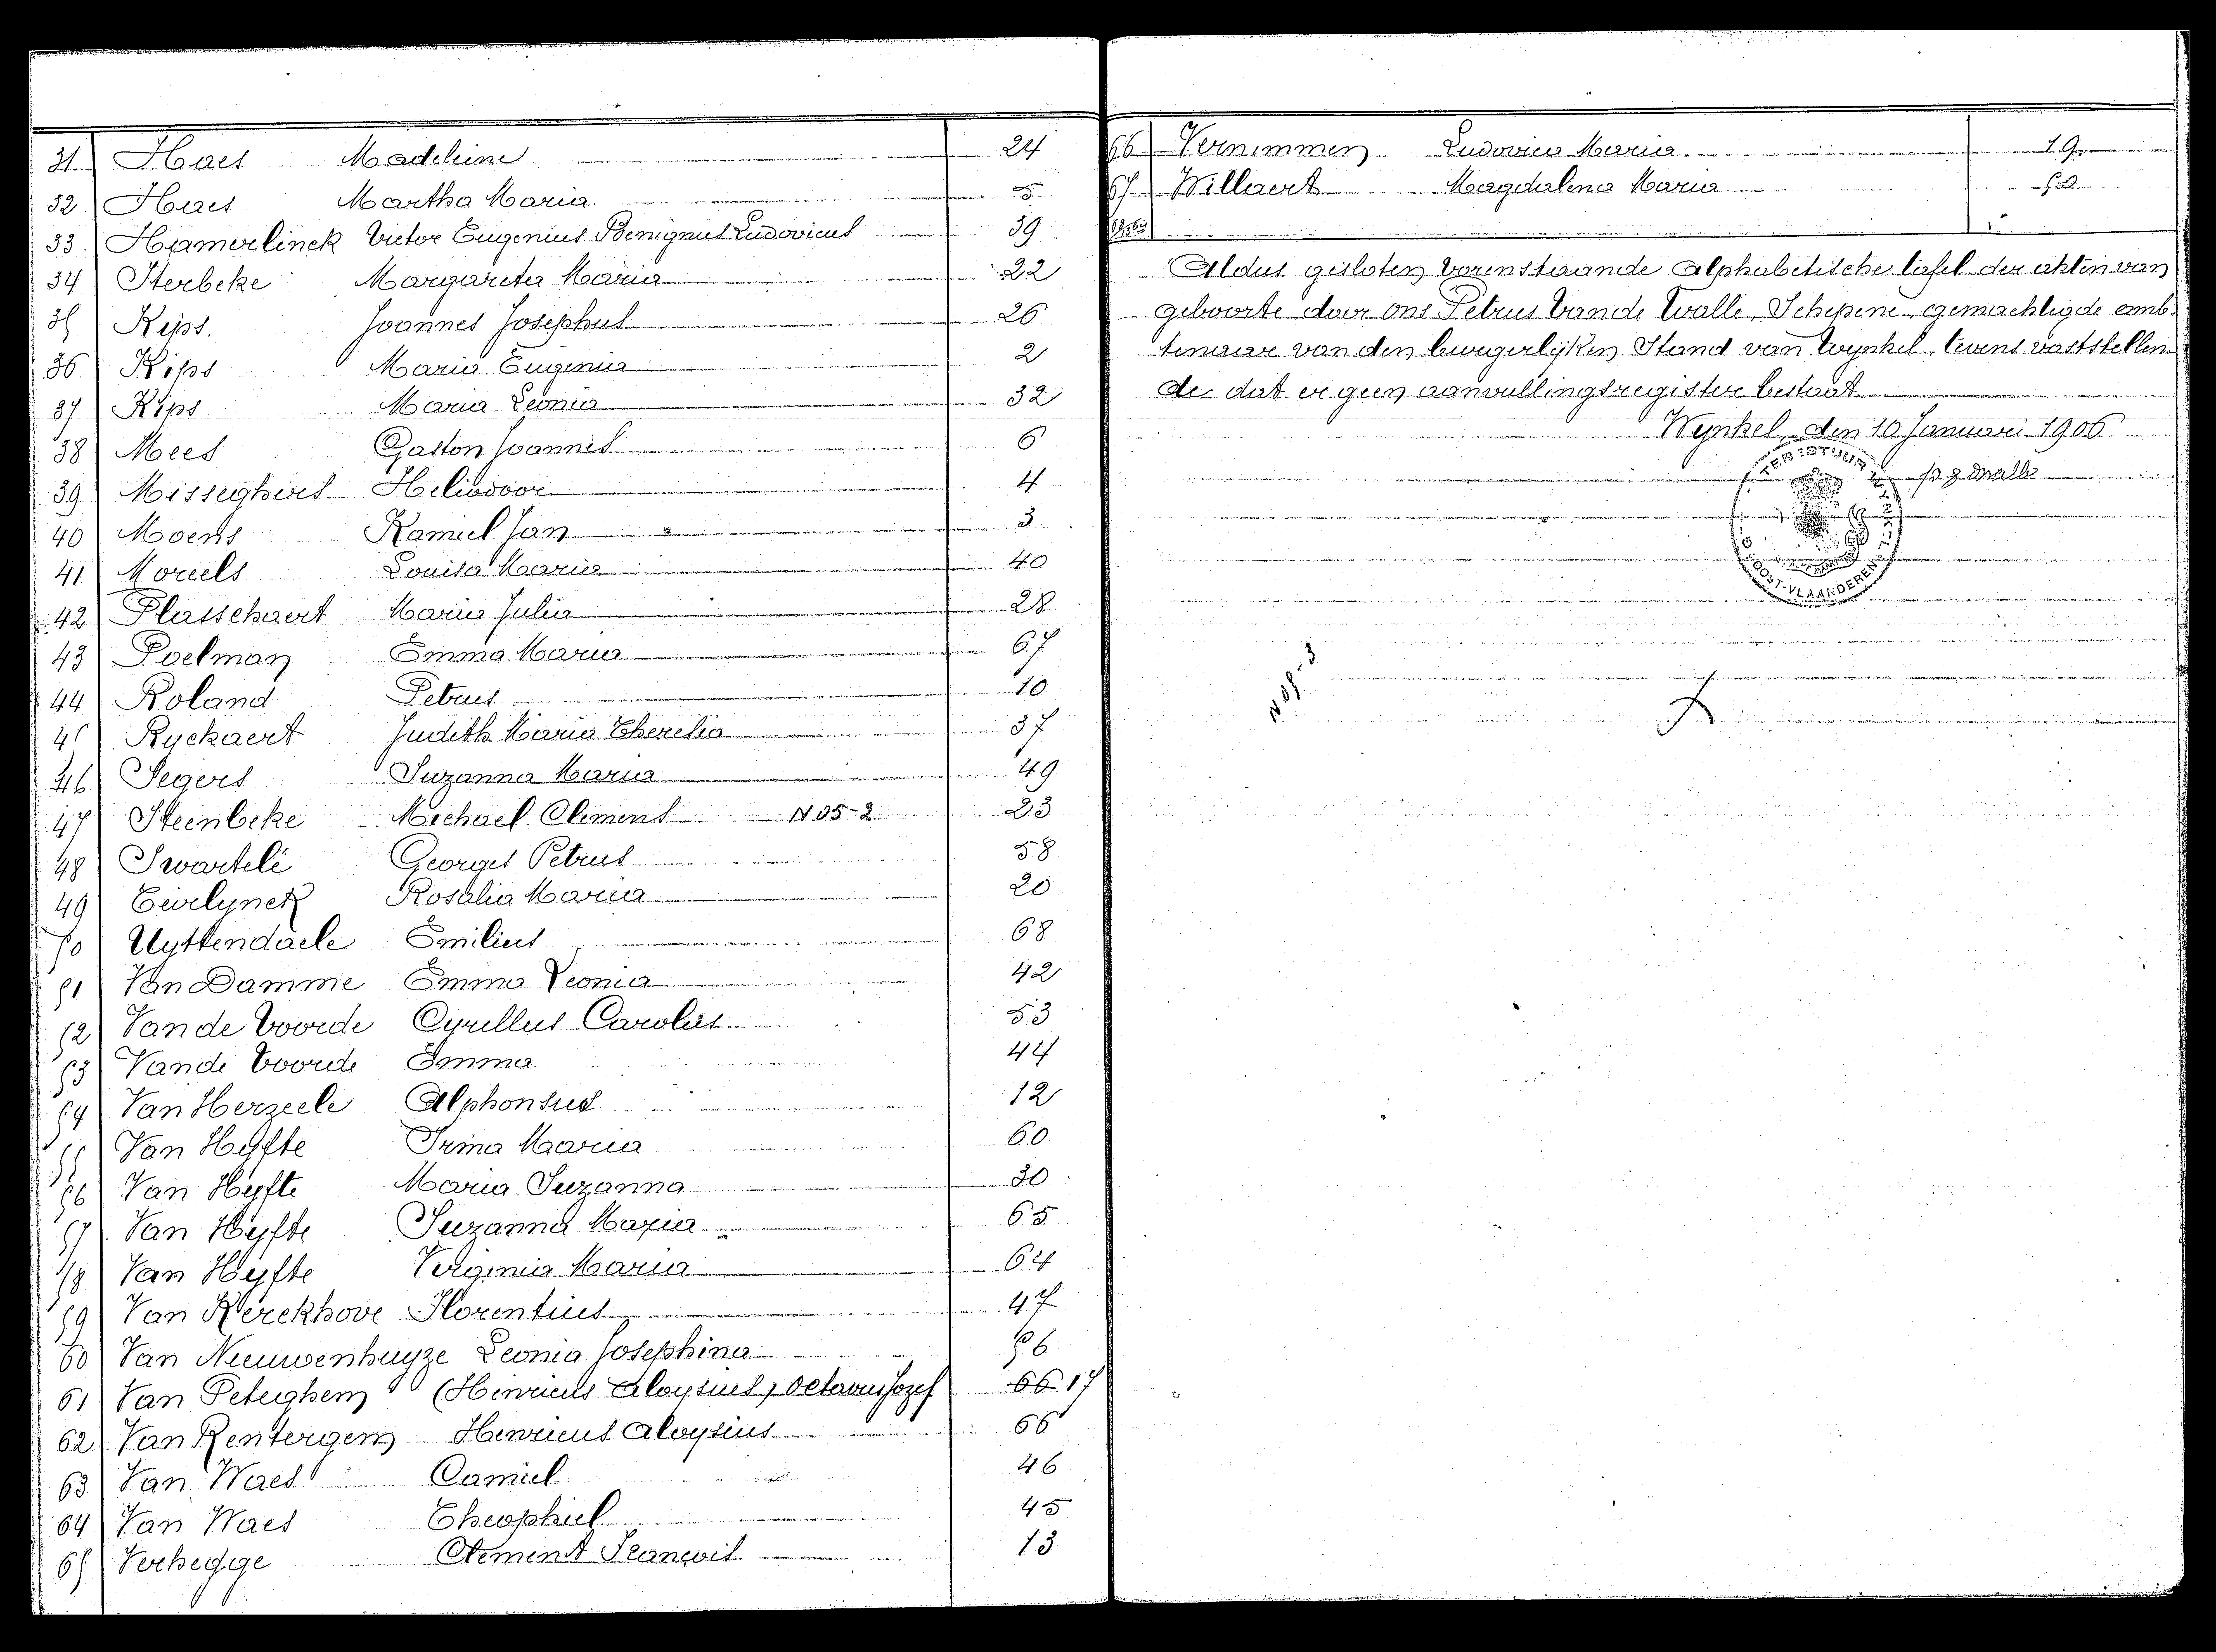 31 Haes Madeleine 24
32 Haes Martha Maria 5
33 Hamerlinck Victor Eugenius Benignus Ludovicus 39
34 Herbeke Margareta Maria 22
35 Kips. Joannes Josephus 26
36 Kips Maria Eugenia 2
37 Kips Maria Leonia 32
38 Mees Gaston Joannes 6
39 Misseghers Heliodoor 4
40 Moens Kamiel Jan 3
41 Moreels Louisa Maria 40
42 Plasschaert Maria Julia 28
43 Poelman Emma Maria 67
44 Roland Petrus 10
45 Ryckaert Judith Maria Theresia 37
46 Segers Suzanna Maria 49
47 Steenbeke Michael Clement N 05-2 23
48 Swartelé Georges Petrus 58
49 Teirlynck Rosalia Maria 20
50 Uyttendaele Emilius 68
51 Van Damme Emma Leonia 42
52 Vande Voorde Cyrillus Carolus 53
53 Vande Voorde Emma 44
54 Van Herzeele Alphonsus 12
55 Van Hyfte Irma Maria 60
56 Van Hyfte Maria Suzanna 30
57 Van Hyfte Suzanna Maria 65
58 Van Hyfte Virginia Maria 64
59 Van Kerckhove Florentius 47
60 Van Nieuwenhuyze Leonia Josephina 56
61 Van Peteghem (Henricus Aloysius, Octavus Jozef 66 17
62 Van Rentergem Henricus Aloysius 66
63 Van Waes Camiel 46
64 Van Waes Theophiel 45
65 Verhegge Clement François 13
66 Vernimmen Ludovicus Maria 19
67 Willaert Magdalena Maria 50
Aldus gesloten vorenstaande alphabetische tafel der akten van
geboorte door ons Petrus Vande Walle, Schepene, gemachtigde amb-
tenaar van den burgerlijken Stand van Wynkel, tevens vaststellen-
de dat er geen aanvullingsregister bestaat
Wynkel, den 10 Januari 1906
OOST-VLAANDEREN
N 05-3